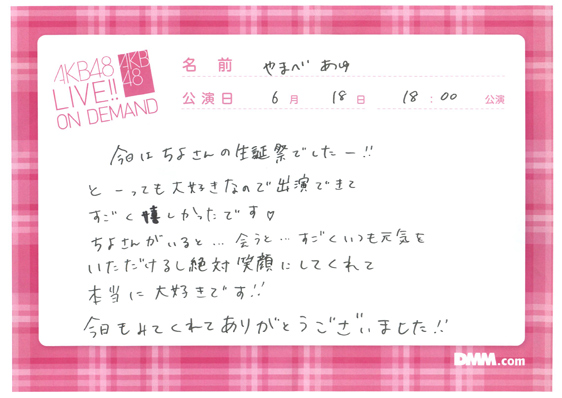 AKB48
LIVE!!
ON DEMAND
AKB
48
名前 やまべ あゆ
公演日 6月 18日 18:00 公演
今日はちよさんの生誕祭でしたー!!
とーっても大好きなので出演できて
すごく嬉しかったです♡
ちよさんがいると…会うと…すごくいつも元気を
いただけるし絶対笑顔にしてくれて
本当に大好きです!!
今日もみてくれてありがとうございました!!
DMM.com